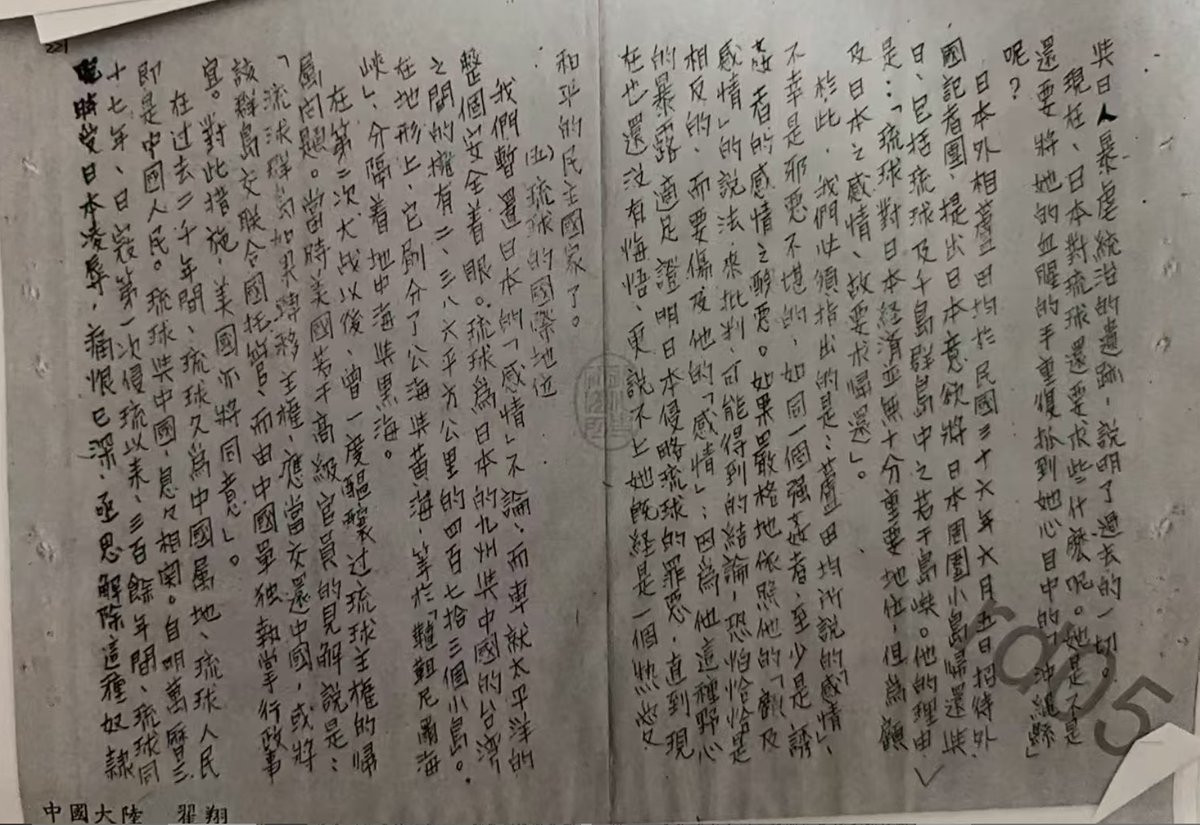 與日人暴虐統治的遺跡，說明了過去的一切。
現在、日本對琉球還要求些什麼呢。她是不是
還要將她的血腥的手重復抓到她心目中的「沖繩縣」
呢？
日本外相蘆田均於民國三十六年六月五日招待外
國記者團，提出日本意欲將日本周圍小島歸還與
日、包括琉球及千島群島中之若干島嶼。他的理由
是：「琉球對日本經濟並無十分重要地位，但為顧
及日本之感情、故要求歸還」。
於此，我們必須指出的是：蘆田均所說的「感情」、
不幸是邪惡不堪的，如同一個强姦者，至少是誘
姦者的感情之醜惡。如果嚴格地依照他的「顧及
感情」的說法，來批判，可能得到的結論，恐怕恰恰是
相反的，而要傷及他的「感情」；因為他這種野心
的暴露，適足證明日本侵略琉球的罪惡，直到現
在也還沒有悔悟、更說不上她既經是一個熱愛
和平的民主國家了。
(五) 琉球的國際地位
我們暫置日本的「感情」不論，而專就太平洋的
整個安全着眼。琉球為日本的九州與中國的台灣
之間的擁有二、三八六平方公里的四百七拾三個小島。
在地形上，它劃分了公海與黃海，等於「韃靼尼爾海
峽」、分隔着地中海與黑海。
在第二次大战以後，曾一度醞釀过琉球主權的歸
屬问題。當時美國若干高級官員的見解說是：
「琉球群島如果轉移主權，應當交還中國，或將
該群島交联合國托管、而由中國單独執掌行政事
宜。對此措施，美國亦將同意」。
在过去二千年間、琉球久為中國屬地、琉球人民
即是中國人民。琉球與中國，息々相関。自明萬曆三
十七年、日寇第一次侵琉以来，三百餘年間、琉球同
胞時受日本凌辱，痛恨已深，亟思解除這種奴隸
221
中國大陸 翟翔
rd05